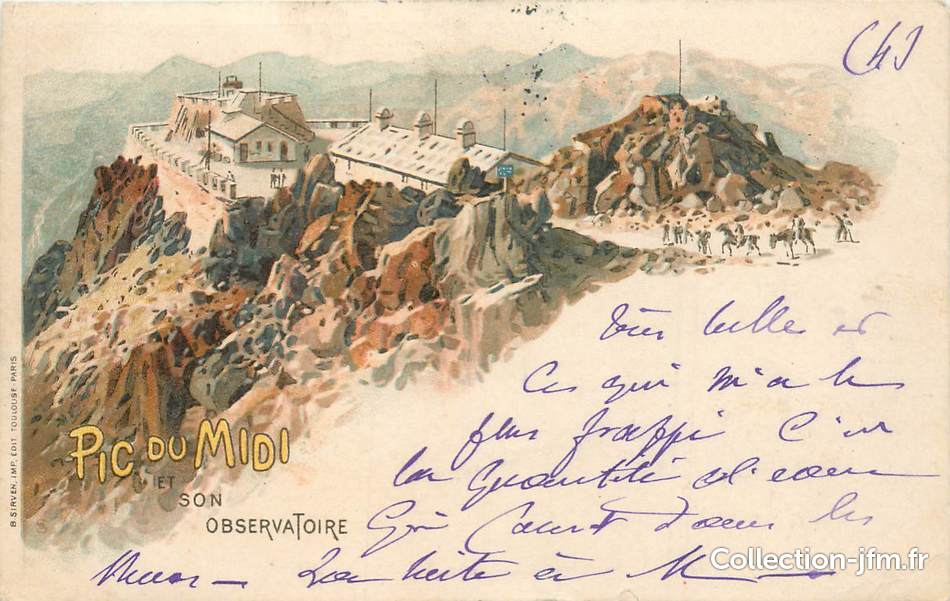 PIC DU MIDI
ET
SON
OBSERVATOIRE
B. SIRVEN, IMP. EDIT. TOULOUSE. PARIS
Ce qui m'a le
plus frappé c'est
la quantité d'eau
qui court dans les
à M
Collection-jfm.fr